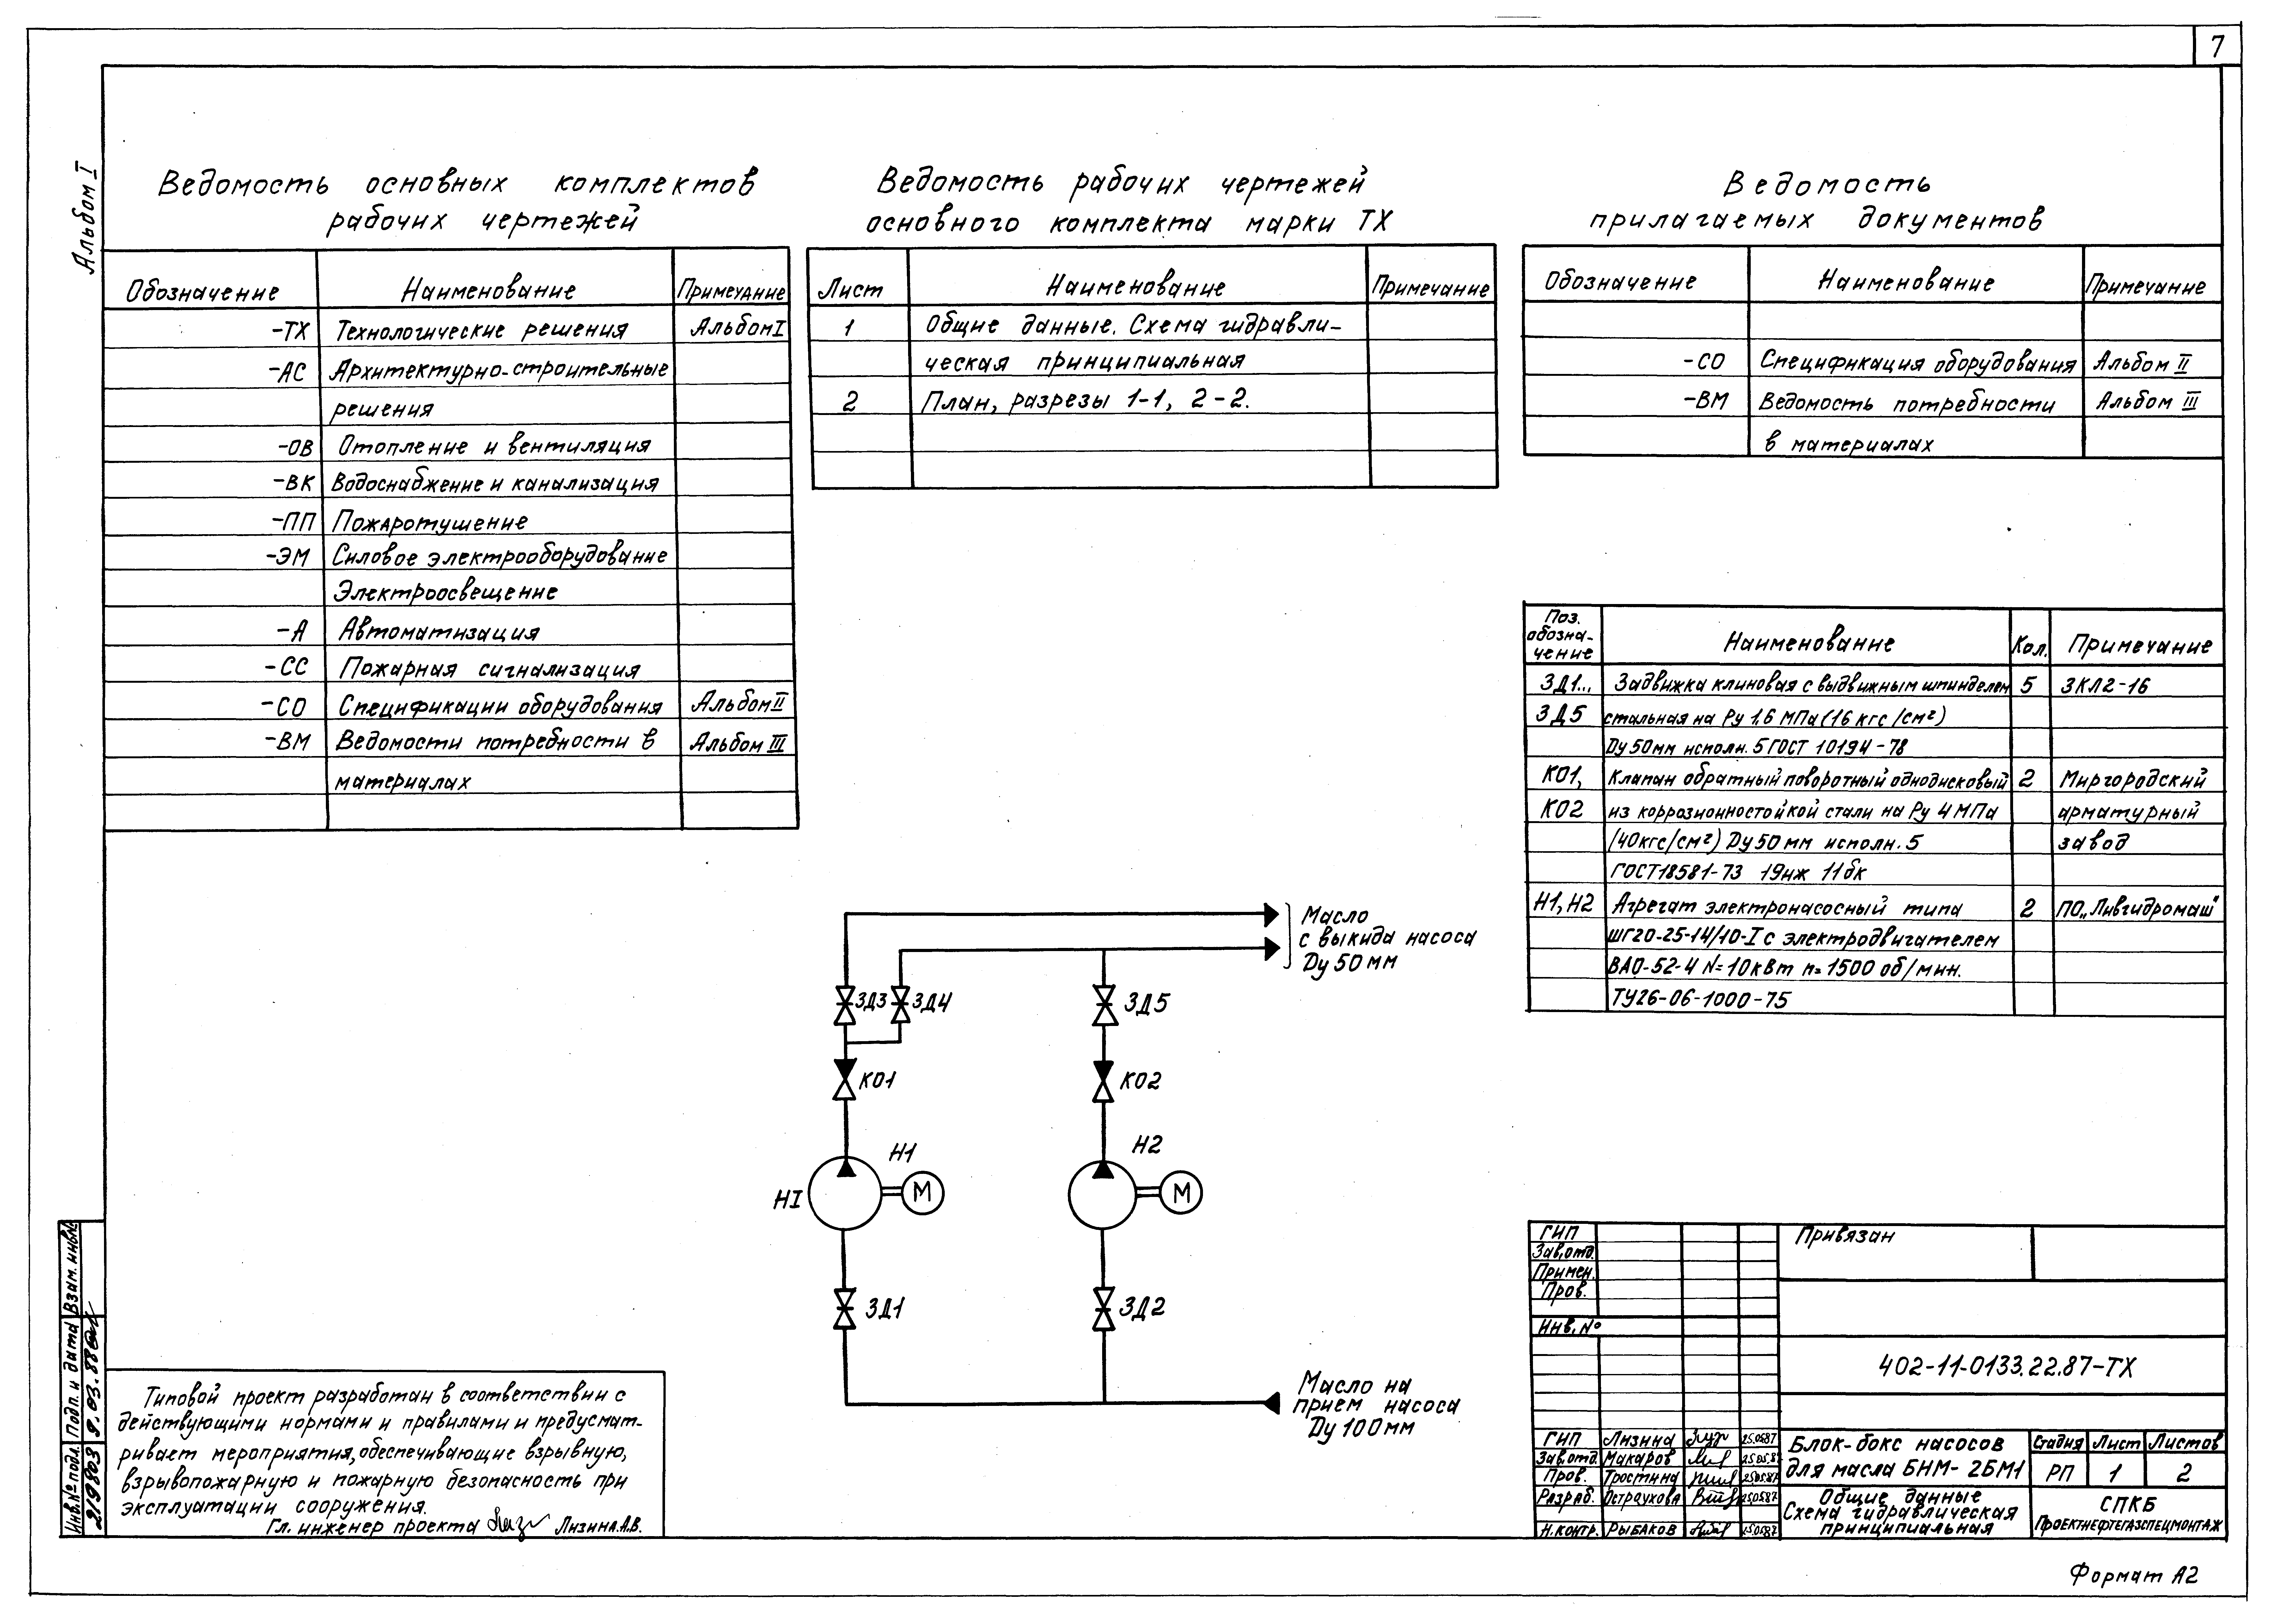 7
Альбом I
Ведомость основных комплектов
рабочих чертежей
Обозначение Наименование Примечание
-ТХ Технологические решения Альбом I
-АС Архитектурно-строительные
решения
-ОВ Отопление и вентиляция
-ВК Водоснабжение и канализация
-ПП Пожаротушение
-ЭМ Силовое электрооборудование
Электроосвещение
-А Автоматизация
-СС Пожарная сигнализация
-СО Спецификации оборудования Альбом II
-ВМ Ведомости потребности в Альбом III
материалах
Ведомость рабочих чертежей
основного комплекта марки ТХ
Лист Наименование Примечание
1 Общие данные. Схема гидравли-
ческая принципиальная
2 План, разрезы 1-1, 2-2.
Ведомость
прилагаемых документов
Обозначение Наименование Примечание
-СО Спецификация оборудования Альбом II
-ВМ Ведомость потребности Альбом III
в материалах
Поз.
обозна-
чение Наименование Кол. Примечание
ЗД1... Задвижка клиновая с выдвижным шпинделем 5 ЗКЛ2-16
ЗД5 стальная на Ру 1,6 МПа (16 кгс/см²)
Ду 50мм исполн. 5 ГОСТ 10194-78
КО1, Клапан обратный поворотный однодисковый 2 Миргородский
КО2 из коррозионностойкой стали на Ру 4 МПа арматурный
(40кгс/см²) Ду 50 мм исполн. 5 завод
ГОСТ18581-73 19нж 11бк
Н1, Н2 Агрегат электронасосный типа 2 ПО„Ливгидромаш"
ШГ20-25-14/10-I с электродвигателем
ВАО-52-4 N=10кВт n=1500 об/мин.
ТУ26-06-1000-75
Масло
с выкида насоса
Ду 50 мм
ЗД3 ЗД4 ЗД5
КО1 КО2
Н1 Н2
НI М М
ЗД1 ЗД2
Масло на
прием насоса
Ду 100мм
Типовой проект разработан в соответствии с
действующими нормами и правилами и предусмат-
ривает мероприятия, обеспечивающие взрывную,
взрывопожарную и пожарную безопасность при
эксплуатации сооружения.
Гл. инженер проекта Лизина.А.В.
Инв.№ подл. Подп. и дата Взам. инв.№
219803 9.03.88
ГИП
Зав.отд.
Примен.
Пров.
Инв.№
Привязан
402-11-0133.22.87-ТХ
ГИП Лизина 25.05.87
Зав.отд. Макаров 25.05.87
Пров. Тростина 25.05.87
Разраб. Остраухова 25.05.87
Н.контр. Рыбаков 25.05.87
Блок-бокс насосов
для масла БНМ-2БМ1
Стадия Лист Листов
РП 1 2
Общие данные
Схема гидравлическая
принципиальная
СПКБ
Проектнефтегазспецмонтаж
Формат А2